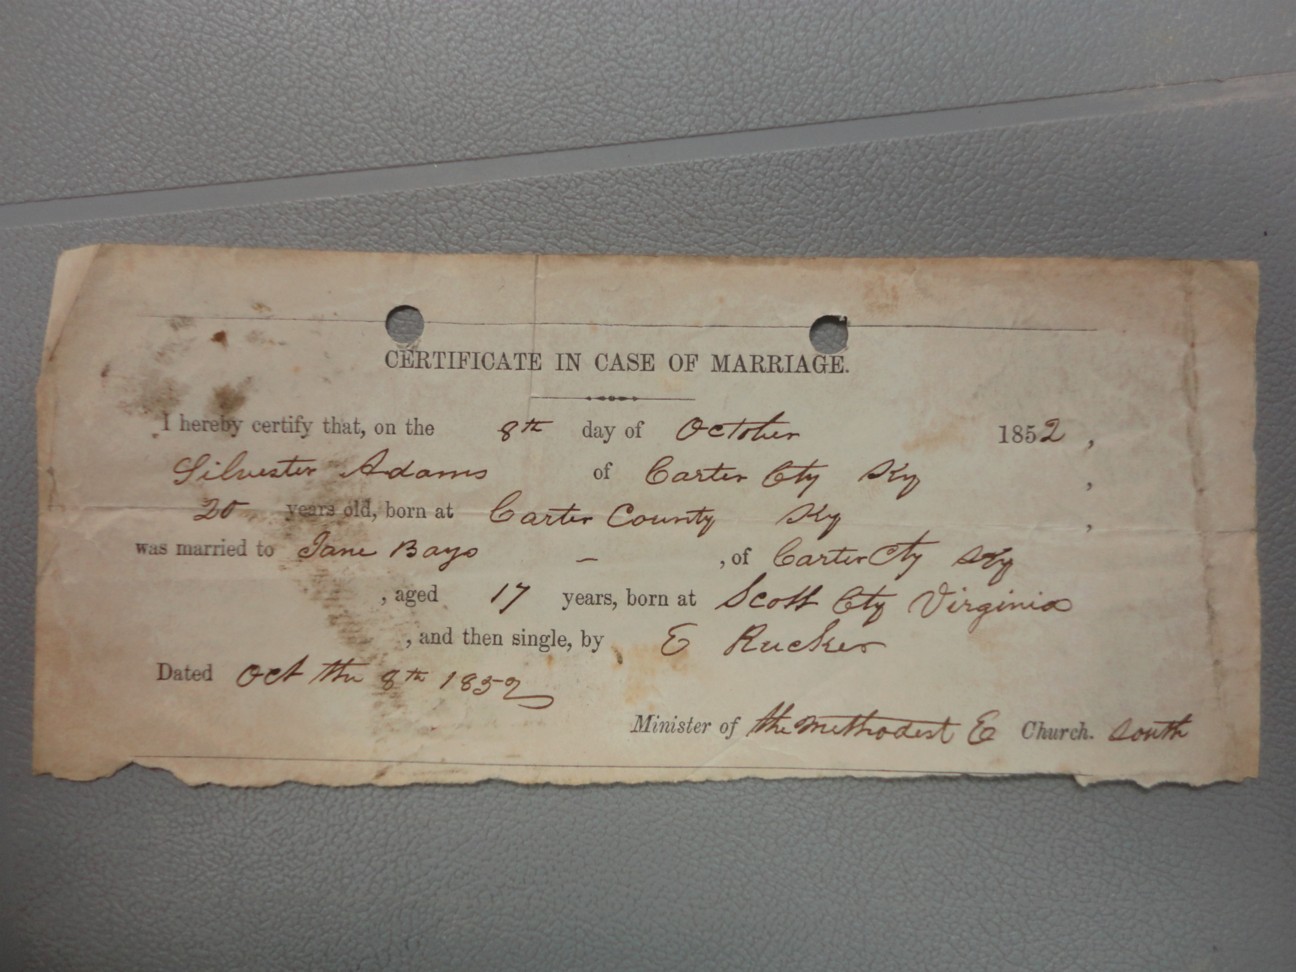 CERTIFICATE IN CASE OF MARRIAGE.
I hereby certify that, on the 8th day of October 1852,
Silvester Adams of Carter Cty Ky,
20 years old, born at Carter County Ky,
was married to Jane Bays –, of Carter Cty Ky
, aged 17 years, born at Scott Cty Virginia
, and then single, by E Rucker
Dated Oct the 8th 1852
Minister of the Methodest E Church. South